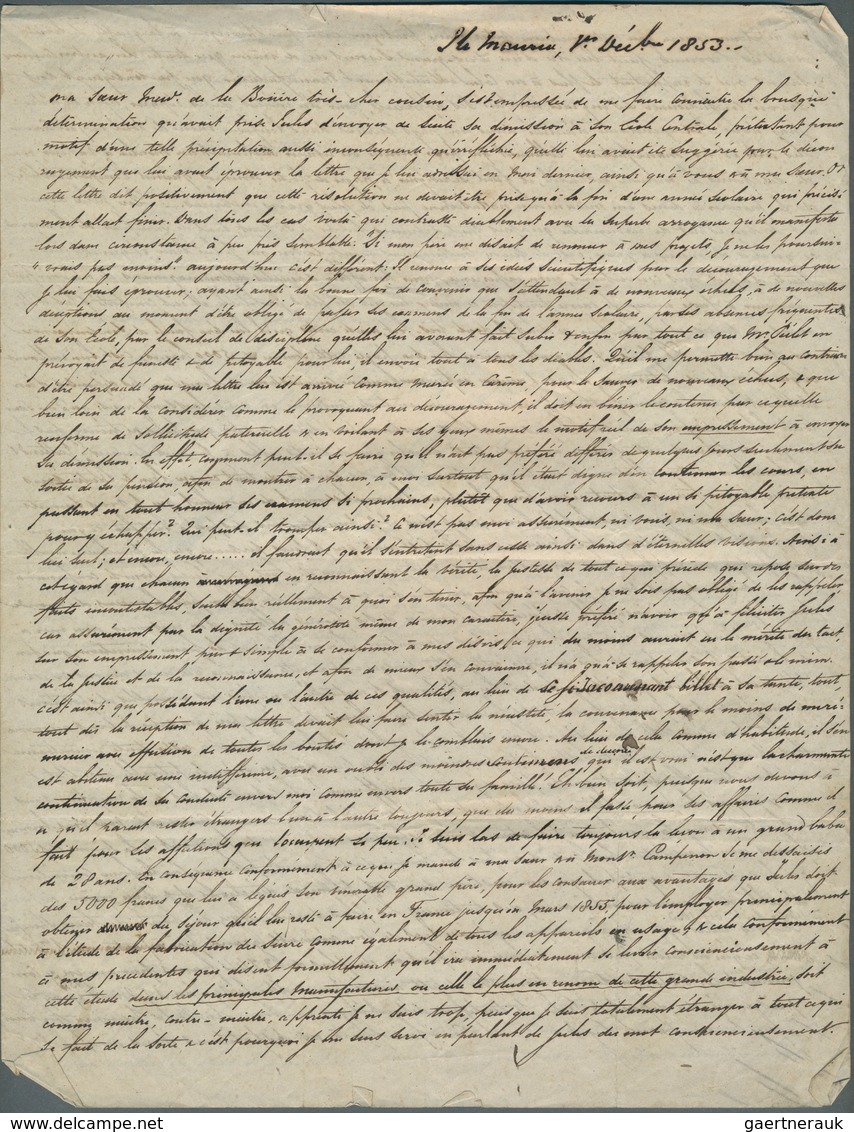 Ile Maurice, 1er Décbre 1853.
ma Sœur Meuv. de la Bonière très-cher cousin, s'est empressée de me faire connaitre la brusque
détermination qu'avait prise Jules d'envoyer de suite sa démission à son Ecole Centrale, prétextant pour
motif d'une telle précipitation aussi inconséquente qu'irréfléchie, qu'elle lui avait été suggérée par le décou
ragement que lui avait fait éprouver la lettre que je lui adressai en Mars dernier, ainsi qu'à vous & à ma Sœur. Or
cette lettre dit positivement que cette résolution ne devait être prise qu'à la fin d'une année Scolaire qui précisé
ment allait finir. Dans tous les cas voilà qui contraste diablement avec la superbe arrogance qu'il manifesta
lors d'une circonstance à peu près semblable: "Si mon père me disait de renoncer à mes projets, je ne les poursui-
"vrais pas moins". aujourd'hui c'est différent: Il renonce à ses idées Scientifiques par le découragement que
je lui fais éprouver; ayant ainsi la bonne foi de convenir que s'attendant à de nouveaux échecs, à de nouvelles
déceptions au moment d'être obligé de passer ses examens de la fin de l'année Scolaire, par ses absences fréquentes
de son Ecole, par le conseil de discipline qu'elles lui avaient fait subir & enfin par tout ce que Mr.
prévoyait de funeste & de pitoyable pour lui, il envoie tout à tous les diables. Qu'il me permette bien au contraire
d'être persuadé que ma lettre lui est arrivée comme marée en Carême, pour le sauver de nouveaux échecs, & que
bien loin de la considérer comme le provoquant au découragement, il doit en bénir le contenu par ce qu'elle
renferme de sollicitude paternelle & en voilant à ses yeux mêmes le motif réel de son empressement à envoyer
sa démission. En effet comment peut-il se faire qu'il n'ait pas préféré différer de quelques jours seulement sa
sortie de sa pension afin de montrer à chacun, à moi surtout qu'il était digne d'en continuer les cours, en
passant en tout honneur ses examens si prochains, plutôt que d'avoir recours à un si pitoyable prétexte
pour y échapper? Qui peut-il tromper ainsi? ce n'est pas moi assurément, ni vous, ni ma Sœur; c'est donc
lui seul; et encore, encore..... il faudrait qu'il s'entretint sans cesse ainsi dans d'éternelles visions. Ainsi à
cet égard que chacun en reconnaissant la vérité, la justesse de tout ce qui précède qui repose sur des
faits incontestables, sache bien réellement à quoi s'en tenir, afin qu'à l'avenir je ne sois pas obligé de les rappeler
car assurément par la dignité la générosité même de mon caractère, j'eusse préféré n'avoir qu'à féliciter Jules
sur son empressement pur & simple à se conformer à mes désirs, ce qui du moins aurait eu le mérite du tact,
de la justice et de la reconnaissance, et afin de mieux s'en convaincre, il n'a qu'à se rappeler son passé
c'est ainsi que possédant l'une ou l'autre de ces qualités, au lieu de se billet à sa tante, tout,
tout dès la réception de ma lettre devait lui faire sentir la nécessité, la convenance pour le moins de me re-
mercier avec effusion de toutes les bontés dont je le comblais encore. Au lieu de cela comme d'habitude, il s'en
est abstenu avec une indifférence, avec un oubli des moindres convenances qui il est vrai n'est que la charmante
continuation de sa conduite envers moi comme envers toute sa famille! Eh bien soit, puisque nous devons à
ce qu'il parait rester étrangers l'un à l'autre toujours, que du moins il fasse pour ses affaires comme il
fait pour les affections qui l'occupent si peu. Je suis las de faire toujours la leçon à un grand
de 28 ans. En conséquence conformément à ce que je mande à ma Sœur & à Monsr. Campenon de me dessaisir
des 5000 francs que lui a légués son vénérable grand père, pour les consacrer aux avantages que Jules doit
obtenir du séjour qu'il lui reste à faire en France jusqu'en Mars 1855 pour l'employer principalement
à l'étude de la fabrication du Sucre comme également de tous les appareils en usage & cela conformément
à mes précédentes qui disent formellement qu'il va immédiatement se livrer consciencieusement à
cette étude dans les principales manufactures, ou celle la plus en renom de cette grande industrie, soit
comme maître, contre-maître, apprenti je ne sais trop, puisque je suis totalement étranger à tout ce qui
se fait de la sorte & c'est pourquoi je me suis servi en parlant de Jules du mot consciencieusement.
gaertnerauk